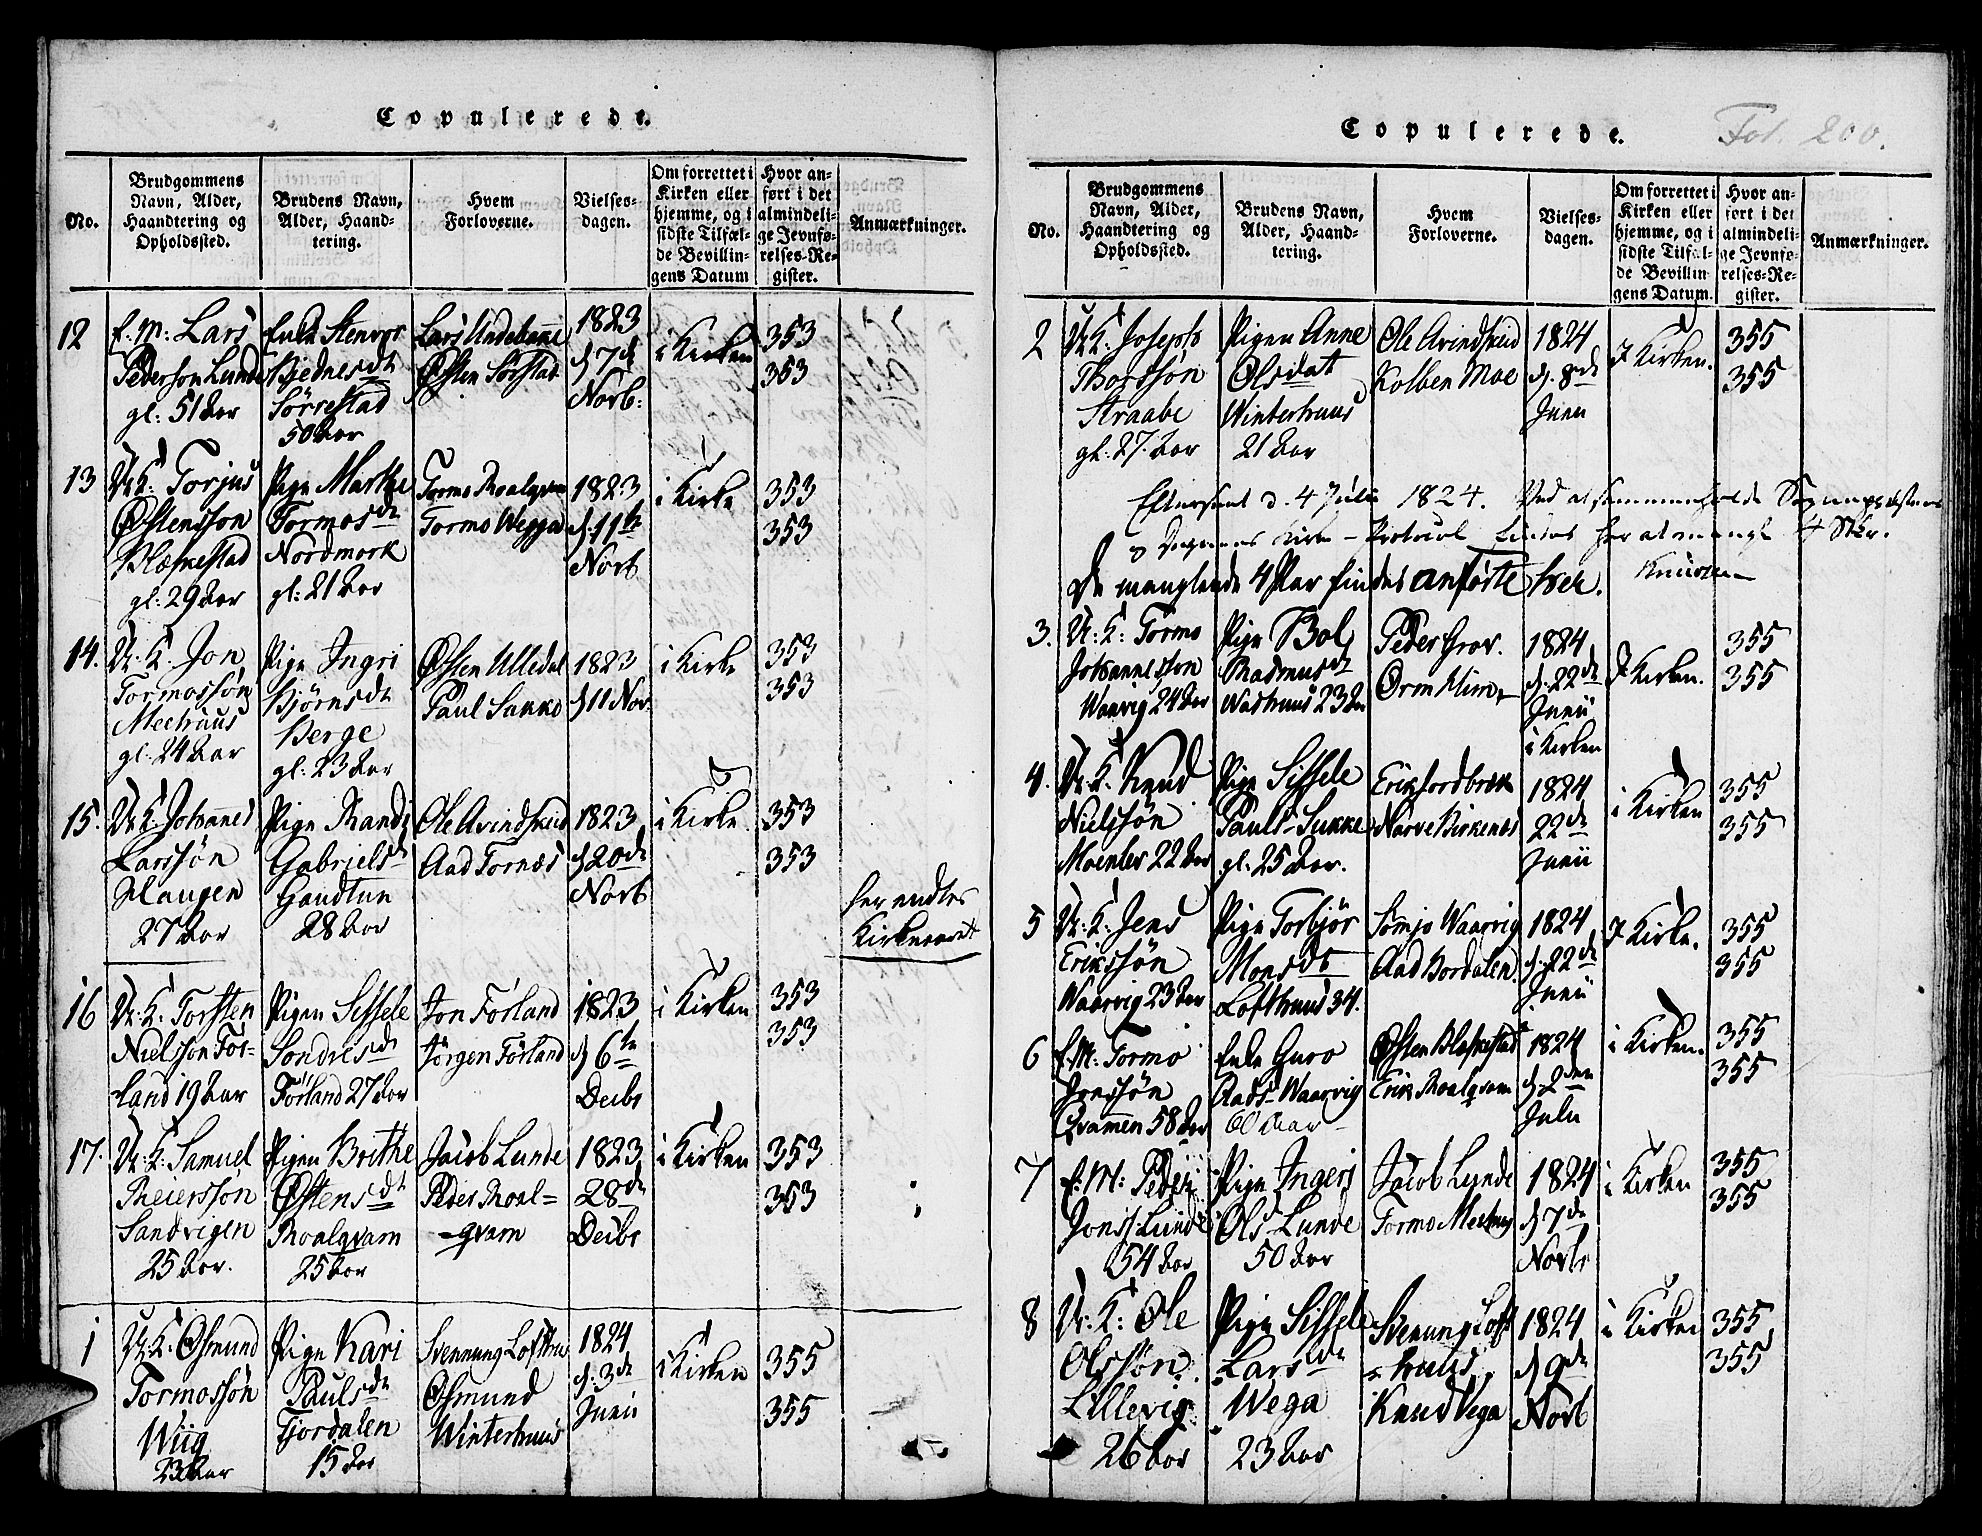 Copulerede.
No.
Brudgommens
Navn, Alder,
Haandtering og
Opholdssted.
Brudens Navn,
Alder, Haand-
tering.
Hvem
Forloverne.
Vielses-
dagen.
Om forrettet i
Kirken eller
hjemme, og i
sidste Tilfæl-
de Bevillin-
gens Datum
Hvor an-
ført i det
almindeli-
ge Jevnfø-
relses-Re-
gister.
Anmærkninger.
12
E. M: Lars
Pederson Lunde
gl: 51 Aar
Enke Stenvor
Kjednesdt
Sørrestad
50 Aar
Lars Undebanne
Østen Sørstad
1823
d 7de
Novb:
i Kirken
353
353
13
U. K. Torjus
Østensson
Blæskestad
gl: 29 Aar
Pige Marthe
Tormosdt
Nordmork
gl: 21 Aar
Tormo Roalqvam
Tormo Wegga
1823
d. 11te
Novb
i Kirke
353
353
14.
U. K. Jon
Tormossøn
Meehuus
gl. 24 Aar
Pige Ingri
Bjørnsdt
Berge
gl: 23 Aar
Østen Ulledal
Paul Sukke
1823
d 11 Nov.
i Kirke
353
353
15.
U. K. Johannes
Larssøn
Haugen
27 Aar
Pige Randi
Gabrielsdt
Gandtun
28 Aar
Ole Avindskeid
Aad Tornæs
1823
d 20de
Novb
i Kirke.
353
353
her endtes
Kirkeaaret
16
U: K: Torsten
Nielsson Før-
land 19 Aar
Pigen Sissele
Sondresdt
Førland 27 Aar
Jon Førland
Jørgen Førland
1823
d 6te
Decbr
i Kirken
353
353
17.
U. K: Samuel
Reiersson
Sandvigen
25 Aar.
Pigen Brithe
Østensdt
Roalqvam
25 Aar
Jacob Lunde
Peder Roal-
-qvam
1823
28de
Decbr
i Kirken
353
353
1
U. K. Osmund
Tormossøn
Wiig
23 Aar
Pige Kari
Paulsdt
Fjordalen
15 Aar
Svennung Lofthu
Osmund
Winterhuus
1824
d. 3de
Junii
i Kirken
355
355
Copulerede.
Fol. 200.
No.
Brudgommens
Navn, Alder,
Haandtering og
Opholdssted.
Brudens Navn,
Alder, Haand-
tering.
Hvem
Forloverne.
Vielses-
dagen.
Om forrettet i
Kirken eller
hjemme, og i
sidste Tilfæl-
de Bevillin-
gens Datum.
Hvor an-
ført i det
almindeli-
ge Jevnfø-
relses-Re-
gister.
Anmærkninger.
2
U. K: Joseph
Thorssøn
Straabe
gl: 27. Aar
Pigen Anne
Olsdat
Winterhuus
21 Aar
Ole Avindskeid
Kolben Moe
1824
d. 8de
Junii
I Kirken.
355
355
Efterseet d. 4 Julii 1824. Ved at sammenholde Sognepræstens
og Degnens Kirke-Protocol findes her at mangle 4 Stkr.
Knudsen
De manglende 4 Par findes anførte her.
3.
U: K: Tormo
Johannesson
Waarvig 24 Aar
Pige Bol
Rasmusdt
Wasthuus 23 Aar
Peder Grov.
Orm Kime
1824
d. 22de
Junii
i Kirken
I Kirken.
355
355
4.
U. K. Knud
Nielssøn
Moenles 22 Aar
Pige Sissele
Pauls-Sukke
gl: 25 Aar.
Erik Jordbrek
Narve Birkenes
1824
22de
Junii
i Kirken
355
355
5
U. K: Jens
Erikssøn
Waarvig 23 Aar
Pige Torbjør
Monsdt
Lofthuus 34.
Sømjo Waarvig
Aad Bordalen.
1824
d. 22de
Junii
I Kirke.
355
355
6
E. M: Tormo
Jonssøn
Qvamen 58 Aar
Enke Guro
Aads-Waarvig
60 Aar
Østen Blæskestad
Erik Roalqvam
1824
d. 2den
Julii
i Kirken.
355
355
7
E. M: Peder
Jons: Lunde
54 Aar
Pige Ingeri
Ols Lunde
50 Aar
Jacob Lunde
Tormo Meehuus
1824
d 7de
Novbr
i Kirken
355
355
8
U. K: Ole
Olssøn
Lillevig
26 Aar
Pige Sissele
Larsdt
Wega
23 Aar
Svenung Loft
-huus.
Knud Vega
1824
d 9de
Novb
i Kirken
355
355